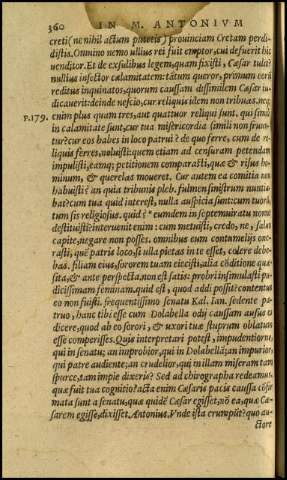 360 IN M. ANTONIVM
creti (ne nihil actum putetis) prouinciam Cretam perdi-
distis. Omnino nemo ullius rei fuit emptor, cui defuerit hic
uenditor. Et de exsulibus legem, quam fixisti, Cæsar tulit?
nullius insector calamitatem: tātum queror, primum eorū
reditus inquinatos, quorum caussam dissimilem Cæsar iu-
dicauerit: deinde nescio, cur reliquis idem non tribuas. neq;
P.179. enim plus quam tres, aut quattuor reliqui sunt. qui simili
in calamitate sunt, cur tua misericordia simili non fruun-
tur? cur eos habes in loco patrui? de quo ferre, cum de re-
liquis ferres, noluisti: quem etiam ad censuram petendam
impulisti, eamq; petitionem comparasti, quæ & risus ho-
minum, & querelas moueret. Cur autem ea comitia non
habuisti? an quia tribunis pleb. fulmen sinistrum nuntia-
bat? cum tua quid interest, nulla auspicia sunt: cum tuorū,
tum sis religiosus. quid? eumdem in septemuiratu nonne
destituisti? interuenit enim: cum metuisti, credo, ne, saluo
capite, negare non posses. omnibus eum contumeliis one-
rasti, quē patris loco, si ulla pietas in te esset, colere debe-
bas. filiam eius, sororem tuam eiecisti, alia cōditione quæ-
sita, & ante perspecta. non est satis: probri insimulasti pu-
dicissimam feminam. quid est, quod addi possit? contentus
eo non fuisti. frequentissimo senatu Kal. Ian. sedente pa-
truo, hanc tibi esse cum Dolabella odij caussam ausus es
dicere, quod ab eo sorori, & uxori tuæ stuprum oblatum
esse comperisses. Quis interpretari potest, impudentiorne,
qui in senatu; an improbior, qui in Dolabellā; an impurior,
qui patre audiente; an crudelior, qui in illam miseram tam
spurce, tam impie dixeris? Sed ad chirographa redeamus.
quæ fuit tua cognitio? acta enim Cæsaris pacis caussa cōfir
mata sunt a senatu, quæ quidē Cæsar egisset, nō ea, quæ Cæ-
sarem egisse, dixisset Antonius. Vnde ista erumpūt? quo au-
ctore